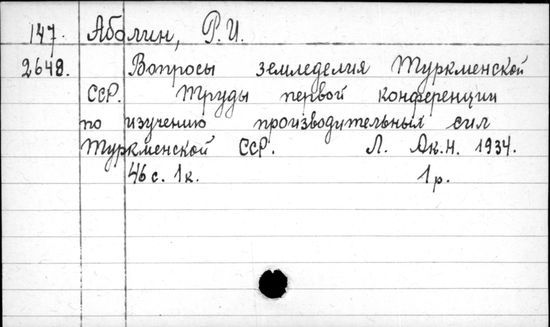 147. Аболин, Р. И.
2648. Вопросы земледелия Туркменской
ССР. Труды первой конференции
по изучению производительных сил
Туркменской ССР. Л. Ак.н. 1934.
46 с. 1 к. 1 р.